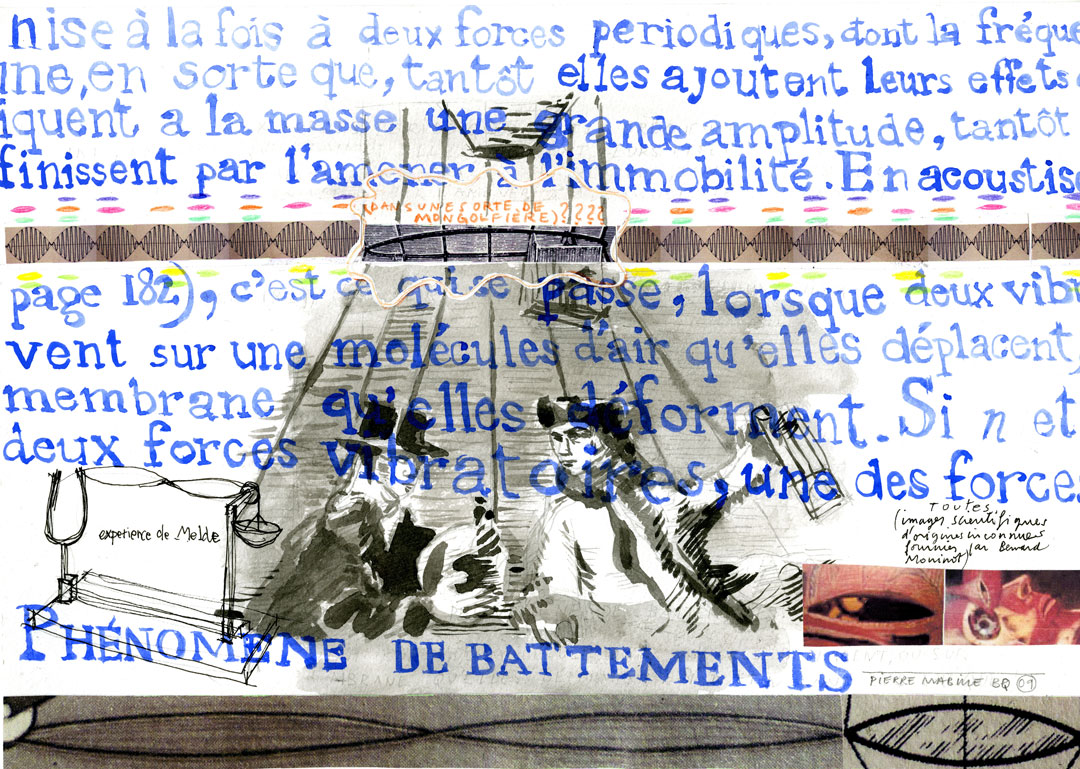 nise à la fois à deux forces periodiques, dont la fréque
une, en sorte que, tantôt elles ajoutent leurs effets
iquent a la masse une grande amplitude, tantôt
finissent par l'amener à l'immobilité. En acoustise
(DANS UNE SORTE DE
MONGOLFIÈRE)????
page 182), c'est ce qui se passe, lorsque deux vibr
vent sur une molécules d'air qu'elles déplacent,
membrane qu'elles déforment. Si n et
deux forces vibratoires, une des forces
experience de Melde
TOUTES
(images scientifiques
d'origines inconnues
fournies par Bernard
Moninot)
PHÉNOMÈNE DE BATTEMENTS
PIERRE MABILLE BQ 09